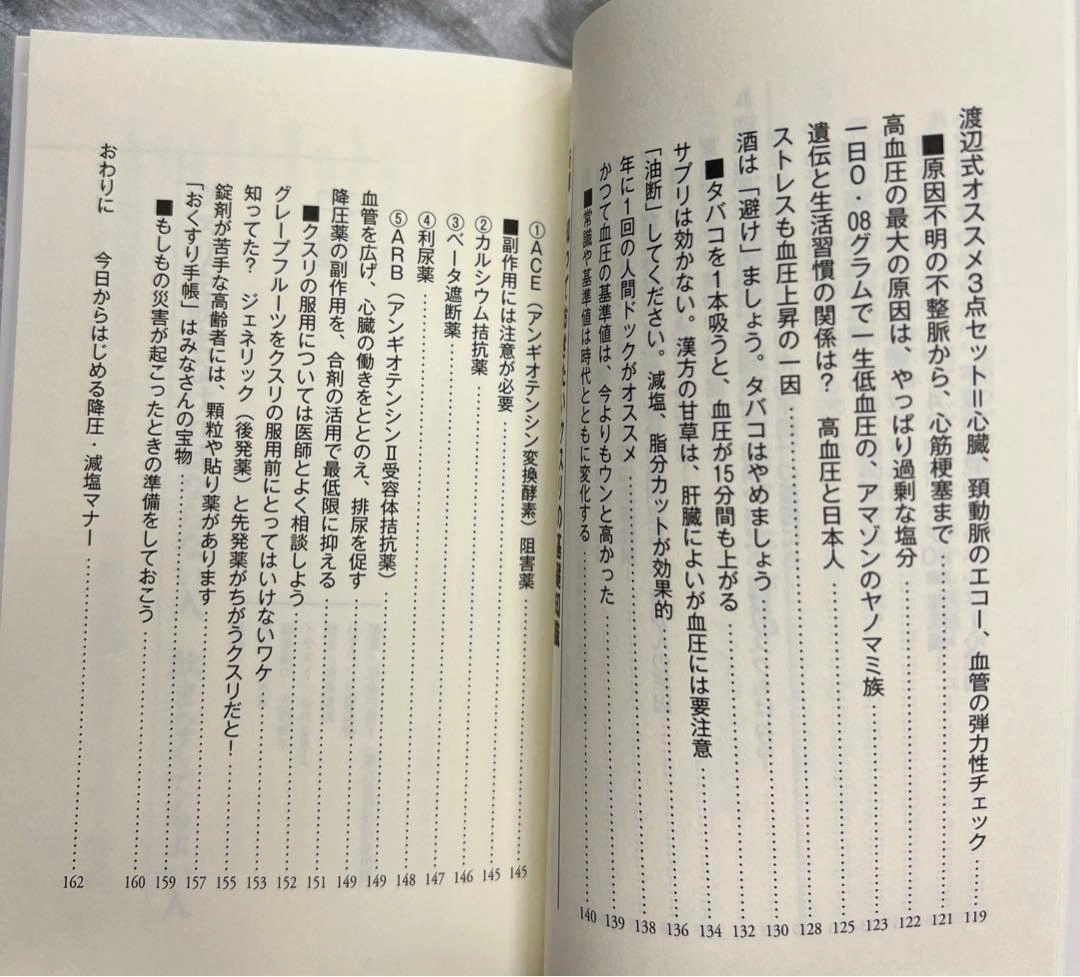 渡辺式オススメ3点セット=心臓、頚動脈のエコー、血管の弾力性チェック……119
■原因不明の不整脈から、心筋梗塞まで……121
高血圧の最大の原因は、やっぱり過剰な塩分……122
一日0・08グラムで一生低血圧の、アマゾンのヤノマミ族……123
遺伝と生活習慣の関係は? 高血圧と日本人……125
ストレスも血圧上昇の一因……128
酒は「避け」ましょう。タバコはやめましょう……130
■タバコを1本吸うと、血圧が15分間も上がる……132
サプリは効かない。漢方の甘草は、肝臓によいが血圧には要注意……134
「油断」してください。減塩、脂分カットが効果的……136
年に1回の人間ドックがオススメ……138
かつて血圧の基準値は、今よりもウンと高かった……139
■常識や基準値は時代とともに変化する……140
っておきたいクスリの基礎知識
①ACE(アンギオテンシン変換酵素)阻害薬……145
■副作用には注意が必要……145
②カルシウム拮抗薬……146
③ベータ遮断薬……147
④利尿薬……148
⑤ARB(アンギオテンシンⅡ受容体拮抗薬)……149
血管を広げ、心臓の働きをととのえ、排尿を促す……149
降圧薬の副作用を、合剤の活用で最低限に抑える……151
■クスリの服用については医師とよく相談しよう……152
グレープフルーツをクスリの服用前にとってはいけないワケ……153
知ってた? ジェネリック(後発薬)と先発薬がちがうクスリだと!……155
錠剤が苦手な高齢者には、顆粒や貼り薬があります……157
「おくすり手帳」はみなさんの宝物……159
■もしもの災害が起こったときの準備をしておこう……160
おわりに 今日からはじめる降圧・減塩マナー……162